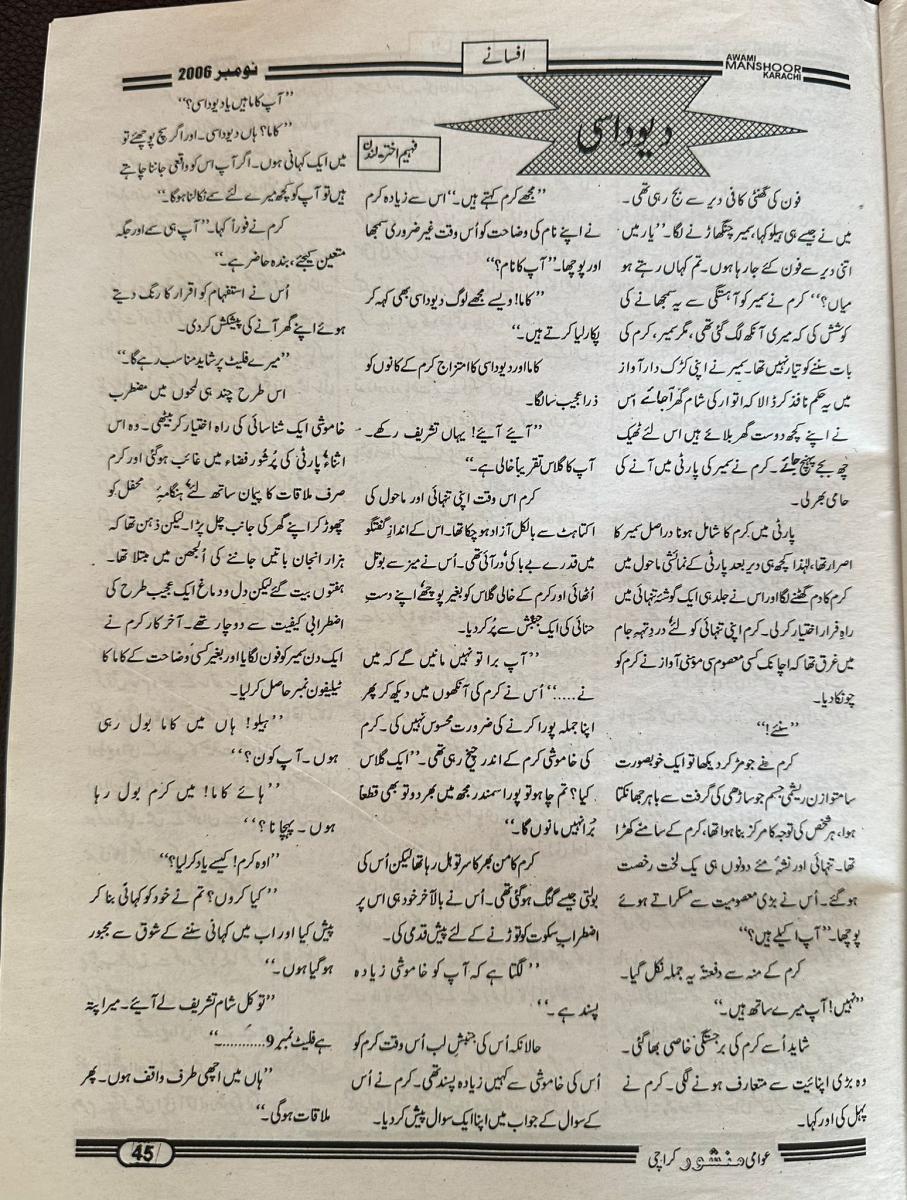 نومبر 2006
افسانے
AWAMI
MANSHOOR
KARACHI
دیوداسی
فہیم اختر۔لندن
فون کی گھنٹی کافی دیر سے بج رہی تھی۔
میں نے جیسے ہی ہیلو کہا، سمیر چنگھاڑنے لگا۔ ’’یار میں
اتنی دیر سے فون کئے جا رہا ہوں۔ تم کہاں رہتے ہو
میاں؟‘‘ کرم نے سمیر کو آہستگی سے یہ سمجھانے کی
کوشش کی کہ میری آنکھ لگ گئی تھی، مگر سمیر، کرم کی
بات سننے کو تیار نہیں تھا۔ سمیر نے اپنی کڑک دار آواز
میں یہ حکم نافذ کر ڈالا کہ اتوار کی شام گھر آجائے اس
نے اپنے کچھ دوست گھر بلائے ہیں اس لئے ٹھیک
چھ بجے پہنچ جائے۔ کرم نے سمیر کی پارٹی میں آنے کی
حامی بھر لی۔
پارٹی میں کرم کا شامل ہونا دراصل سمیر کا
اصرار تھا، لہٰذا کچھ ہی دیر بعد پارٹی کے نمائشی ماحول میں
کرم کا دم گھٹنے لگا اور اس نے جلد ہی ایک گوشۂ تنہائی میں
راہِ فرار اختیار کر لی۔ کرم اپنی تنہائی کو لئے درد تہہ جام
میں غرق تھا کہ اچانک کسی معصوم سی مؤہنی آواز نے کرم کو
چونکا دیا۔
’’سنئے!‘‘
کرم نے جو مڑ کر دیکھا تو ایک خوبصورت
سا متوازن ریشمی جسم جو ساڑھی کی گرفت سے باہر جھانکتا
ہوا، ہر شخص کی توجہ کا مرکز بنا ہوا تھا، کرم کے سامنے کھڑا
تھا۔ تنہائی اور نشۂ مئے دونوں ہی یک لخت رخصت
ہو گئے۔ اُس نے بڑی معصومیت سے مسکراتے ہوئے
پوچھا۔ ’’آپ اکیلے ہیں؟‘‘
کرم کے منہ سے دفعتۂ یہ جملہ نکل گیا۔
’’نہیں! آپ میرے ساتھ ہیں۔‘‘
شاید اُسے کرم کی برجستگی خاصی بھا گئی۔
وہ بڑی اپنائیت سے متعارف ہونے لگی۔ کرم نے
پہل کی اور کہا۔
’’مجھے کرم کہتے ہیں۔‘‘ اس سے زیادہ کرم
نے اپنے نام کی وضاحت کو اُس وقت غیر ضروری سمجھا
اور پوچھا۔ ’’آپ کا نام؟‘‘
’’کاما! ویسے مجھے لوگ دیوداسی بھی کہہ کر
پکار لیا کرتے ہیں۔‘‘
کاما اور دیوداسی کا امتزاج کرم کے کانوں کو
ذرا عجیب سا لگا۔
’’آئیے آئیے! یہاں تشریف رکھے۔
آپ کا گلاس تقریباً خالی ہے۔‘‘
کرم اس وقت اپنی تنہائی اور ماحول کی
اکتاہٹ سے بالکل آزاد ہو چکا تھا۔ اس کے اندازِ گفتگو
میں قدرے بے باکی در آئی تھی۔ اُس نے میز سے بوتل
اُٹھائی اور کرم کے خالی گلاس کو بغیر پوچھے اپنے دستِ
حنائی کی ایک جنبش سے پُر کر دیا۔
’’آپ برا تو نہیں مانیں گے کہ میں
نے.....‘‘ اُس نے کرم کی آنکھوں میں دیکھ کر پھر
اپنا جملہ پورا کرنے کی ضرورت محسوس نہیں کی۔ کرم
کی خاموشی کرم کے اندر چیخ رہی تھی۔ ’’ایک گلاس
کیا؟ تم چاہو تو پورا سمندر مجھ میں بھر دو تو بھی قطعاً
بُرا نہیں مانوں گا۔‘‘
کرم کا من بھر کا سر تو ہل رہا تھا لیکن اُس کی
بولتی جیسے گنگ ہو گئی تھی۔ اُس نے بالآخر خود ہی اس پر
اضطراب سکوت کو توڑنے کے لئے پیش قدمی کی۔
’’لگتا ہے کہ آپ کو خاموشی زیادہ
پسند ہے۔‘‘
حالانکہ اُس کی جنبشِ لب اُس وقت کرم کو
اُس کی خاموشی سے کہیں زیادہ پسند تھی۔ کرم نے اُس
کے سوال کے جواب میں اپنا ایک سوال پیش کر دیا۔
’’آپ کاما ہیں یا دیوداسی؟‘‘
’’کاما؟ ہاں دیوداسی۔ اور اگر سچ پوچھئے تو
میں ایک کہانی ہوں۔ اگر آپ اس کو واقعی جاننا چاہتے
ہیں تو آپ کو کچھ میرے لئے سمے نکالنا ہوگا۔‘‘
کرم نے فوراً کہا۔ ’’آپ ہی سمے اور جگہ
متعین کیجئے، بندہ حاضر ہے۔‘‘
اُس نے استفہام کو اقرار کا رنگ دیتے
ہوئے اپنے گھر آنے کی پیشکش کر دی۔
’’میرے فلیٹ پر شاید مناسب رہے گا۔‘‘
اس طرح چند ہی لمحوں میں مضطرب
خاموشی ایک شناسائی کی راہ اختیار کر بیٹھی۔ وہ اس
اثناء پارٹی کی پُر شور فضاء میں غائب ہو گئی اور کرم
صرف ملاقات کا پیمان ساتھ لئے ہنگامۂ محفل کو
چھوڑ کر اپنے گھر کی جانب چل پڑا۔ لیکن ذہن تھا کہ
ہزار انجان باتیں جاننے کی اُلجھن میں مبتلا تھا۔
ہفتوں بیت گئے لیکن دل و دماغ ایک عجیب طرح کی
اضطرابی کیفیت سے دوچار تھے۔ آخر کار کرم نے
ایک دن سمیر کو فون لگایا اور بغیر کسی وضاحت کے کاما کا
ٹیلیفون نمبر حاصل کر لیا۔
’’ہیلو! ہاں میں کاما بول رہی
ہوں۔ آپ کون؟‘‘
’’ہائے کاما! میں کرم بول رہا
ہوں۔ پہچانا؟‘‘
’’اوہ کرم! کیسے یاد کر لیا؟‘‘
’’کیا کروں؟ تم نے خود کو کہانی بنا کر
پیش کیا اور اب میں کہانی سننے کے شوق سے مجبور
ہو گیا ہوں۔‘‘
’’تو کل شام تشریف لے آئیے۔ میرا پتہ
ہے فلیٹ نمبر 9..........۔‘‘
’’ہاں میں اچھی طرف واقف ہوں۔ پھر
ملاقات ہوگی۔‘‘
45
عوامی منشور کراچی